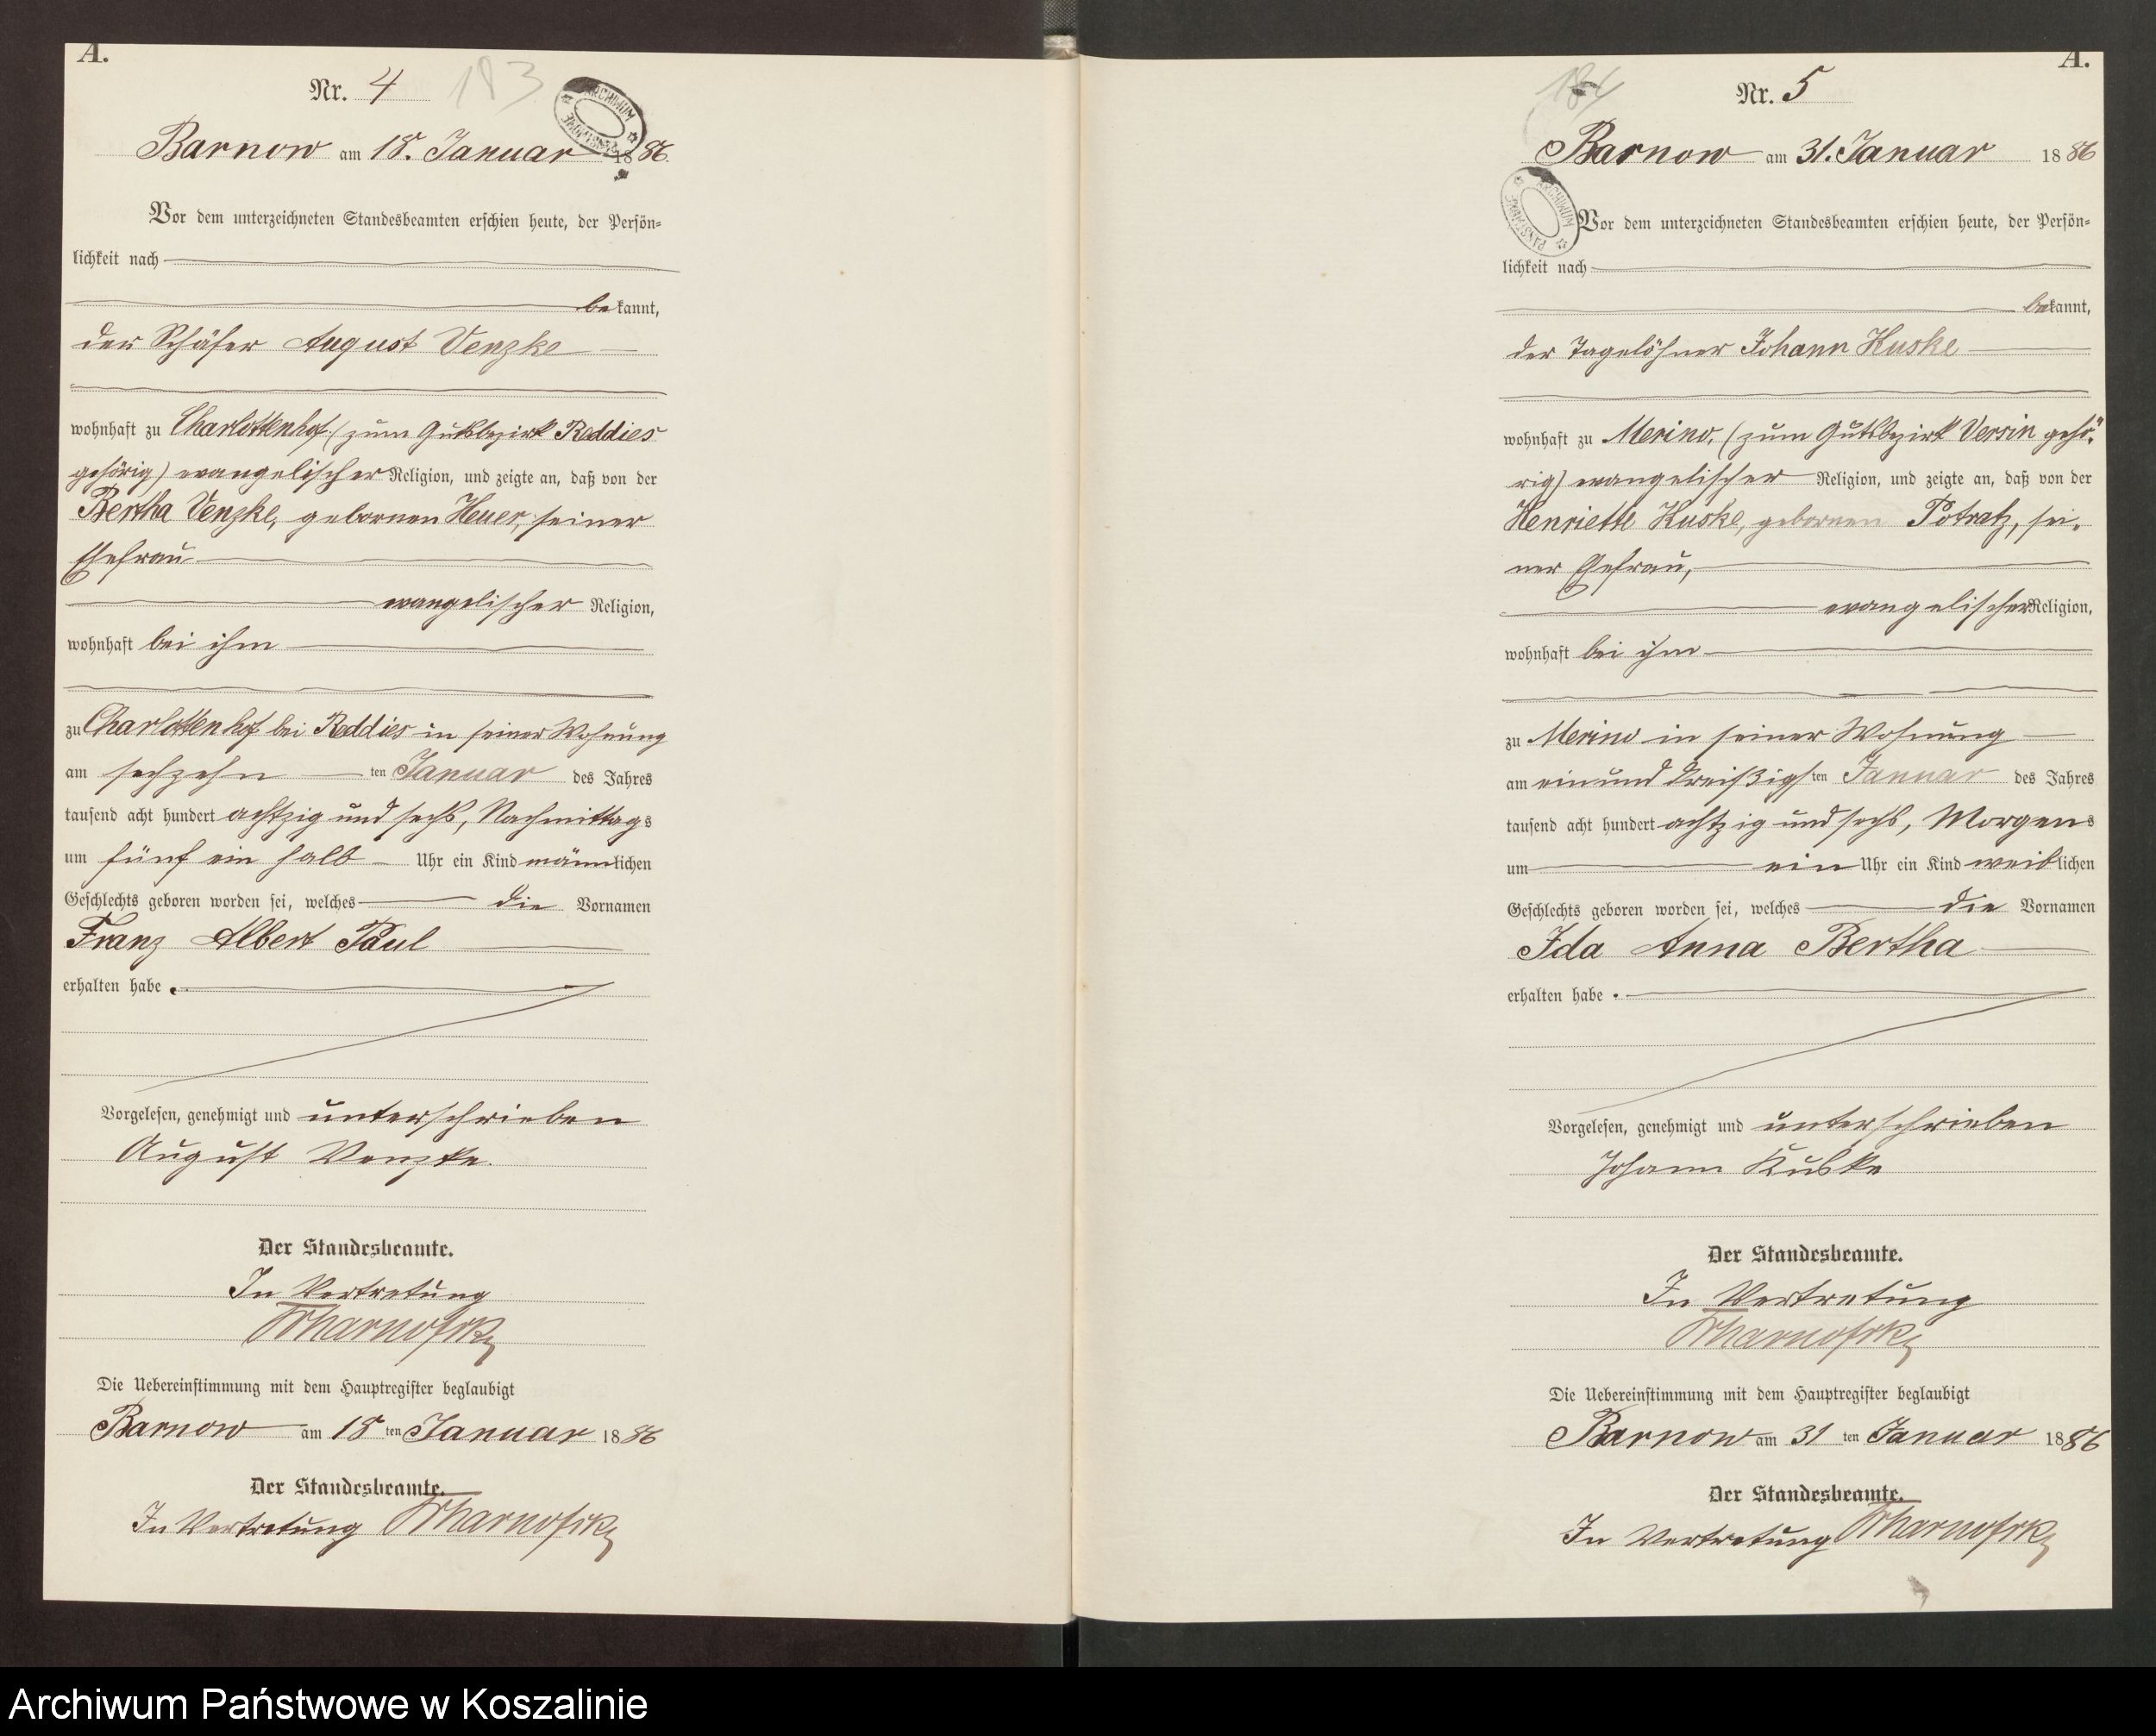 A.
Nr. 4 183
ARCHIWUM PAŃSTWOWE
Barnow am 18. Januar 1886.
Vor dem unterzeichneten Standesbeamten erschien heute, der Persön-
lichkeit nach
bekannt,
der Schäfer August Venzke
wohnhaft zu Charlottenhof (zum Gutsbezirk Reddies
gehörig) evangelischer Religion, und zeigte an, daß von der
Bertha Venzke, gebornen Heuer, seiner
Ehefrau
evangelischer Religion,
wohnhaft bei ihm
zu Charlottenhof bei Reddies in seiner Wohnung
am sechzehn ten Januar des Jahres
tausend acht hundert achtzig und sechs, Nachmittags
um fünf ein halb Uhr ein Kind männlichen
Geschlechts geboren worden sei, welches die Vornamen
Franz Albert Paul
erhalten habe.
Vorgelesen, genehmigt und unterschrieben
August Venzke.
Der Standesbeamte.
In Vertretung
Die Uebereinstimmung mit dem Hauptregister beglaubigt
Barnow am 18 ten Januar 1886
Der Standesbeamte.
In Vertretung
A.
184 Nr. 5
Barnow am 31. Januar 1886
ARCHIWUM PAŃSTWOWE
Vor dem unterzeichneten Standesbeamten erschien heute, der Persön-
lichkeit nach
bekannt,
der Tagelöhner Johann Kuske
wohnhaft zu Merino, (zum Gutsbezirk Versin gehö-
rig) evangelischer Religion, und zeigte an, daß von der
Henriette Kuske, gebornen Potratz, sei-
ner Ehefrau,
evangelischer Religion,
wohnhaft bei ihm
zu Merino in seiner Wohnung
am einund dreißigs ten Januar des Jahres
tausend acht hundert achtzig und sechs, Morgens
um ein Uhr ein Kind weiblichen
Geschlechts geboren worden sei, welches die Vornamen
Ida Anna Bertha
erhalten habe.
Vorgelesen, genehmigt und unterschrieben
Johann Kuske
Der Standesbeamte.
In Vertretung
Die Uebereinstimmung mit dem Hauptregister beglaubigt
Barnow am 31 ten Januar 1886
Der Standesbeamte.
In Vertretung
Archiwum Państwowe w Koszalinie